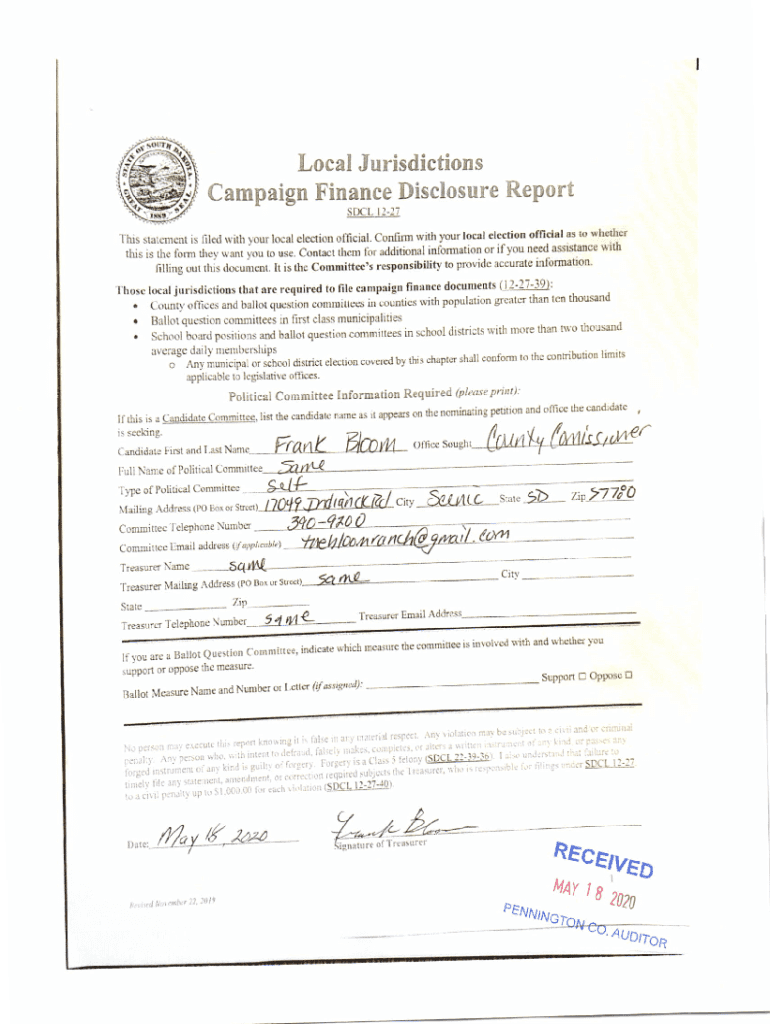 STATE OF SOUTH DAKOTA
GREAT SEAL
1889
Local Jurisdictions
Campaign Finance Disclosure Report
SDCL 12-27
This statement is filed with your local election official. Confirm with your local election official as to whether
this is the form they want you to use. Contact them for additional information or if you need assistance with
filling out this document. It is the Committee's responsibility to provide accurate information.
Those local jurisdictions that are required to file campaign finance documents (12-27-39):
• County offices and ballot question committees in counties with population greater than ten thousand
• Ballot question committees in first class municipalities
• School board positions and ballot question committees in school districts with more than two thousand
average daily memberships
o Any municipal or school district election covered by this chapter shall conform to the contribution limits
applicable to legislative offices.
Political Committee Information Required (please print):
If this is a Candidate Committee, list the candidate name as it appears on the nominating petition and office the candidate
is seeking.
Candidate First and Last Name Frank Bloom Office Sought County Comissioner
Full Name of Political Committee Same
Type of Political Committee Self
Mailing Address (PO Box or Street) 17049 Indian Ck Rd City Scenic State SD Zip 57780
Committee Telephone Number 390-9200
Committee Email address (if applicable) thebloomranch@gmail.com
Treasurer Name same
Treasurer Mailing Address (PO Box or Street) same City
State Zip
Treasurer Telephone Number same Treasurer Email Address
If you are a Ballot Question Committee, indicate which measure the committee is involved with and whether you
support or oppose the measure.
Ballot Measure Name and Number or Letter (if assigned): Support □ Oppose □
No person may execute this report knowing it is false in any material respect. Any violation may be subject to a civil and/or criminal
penalty. Any person who, with intent to defraud, falsely makes, completes, or alters a written instrument of any kind, or passes any
forged instrument of any kind is guilty of forgery. Forgery is a Class 5 felony (SDCL 22-39-36). I also understand that failure to
timely file any statement, amendment, or correction required subjects the Treasurer, who is responsible for filings under SDCL 12-27
to a civil penalty up to $1,000.00 for each violation (SDCL 12-27-40).
Date: May 18, 2020 Frank Bloom
Signature of Treasurer
RECEIVED
MAY 18 2020
PENNINGTON CO. AUDITOR
Revised November 22, 2019